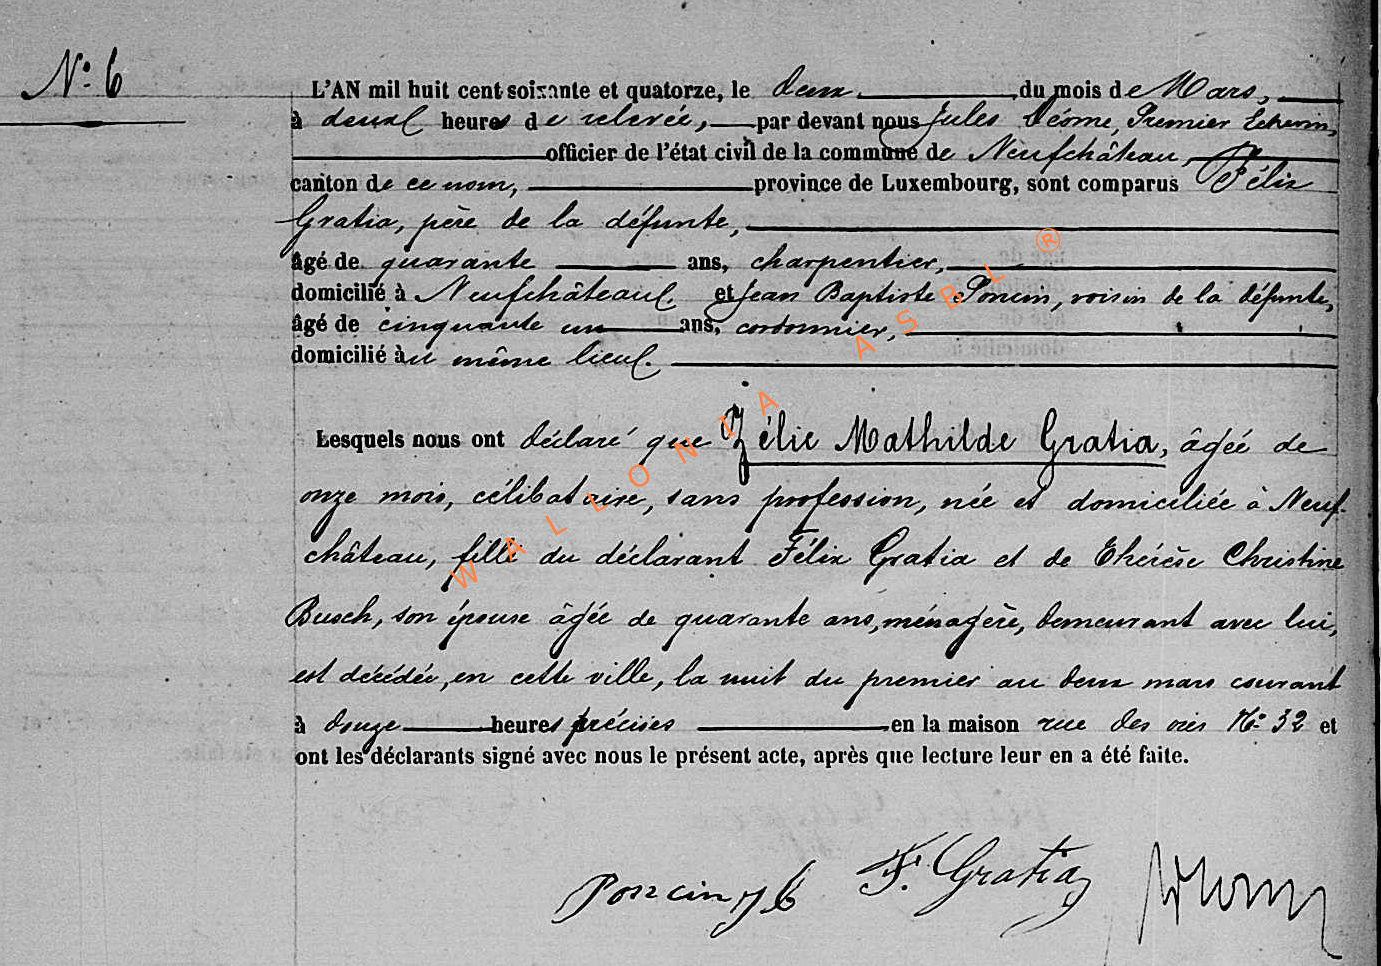 N° 6
L'AN mil huit cent soixante et quatorze, le deux du mois de Mars,
à deux heures de relevée, par devant nous Jules Premier Echevin,
officier de l'état civil de la commune de Neufchâteau,
canton de ce nom, province de Luxembourg, sont comparus Félix
Gratia, père de la défunte,
âgé de quarante ans, charpentier,
domicilié à Neufchâteau. et Jean Baptiste Poncin, voisin de la défunte,
âgé de cinquante un ans, cordonnier,
domicilié au même lieu.
Lesquels nous ont déclaré que Zélie Mathilde Gratia, âgée de
onze mois, célibataire, sans profession, née et domiciliée à Neuf-
château, fille du déclarant Félix Gratia et de Thérèse Christine
Busch, son épouse âgée de quarante ans, ménagère, demeurant avec lui,
est décédée, en cette ville, la nuit du premier au deux mars courant
à douze heures précises en la maison rue des N° 32 et
ont les déclarants signé avec nous le présent acte, après que lecture leur en a été faite.
Poncin J B F. Gratia
WALLONIA ASBL ®